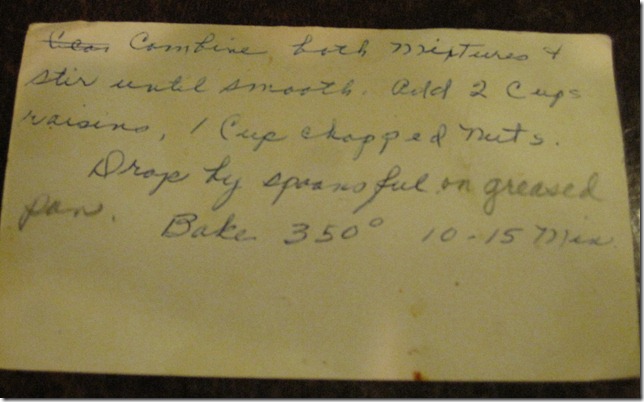 Combine both mixtures &
stir until smooth. Add 2 Cups
raisins, 1 Cup chopped nuts.
Drop by spoonsful on greased
pan. Bake 350° 10-15 Min